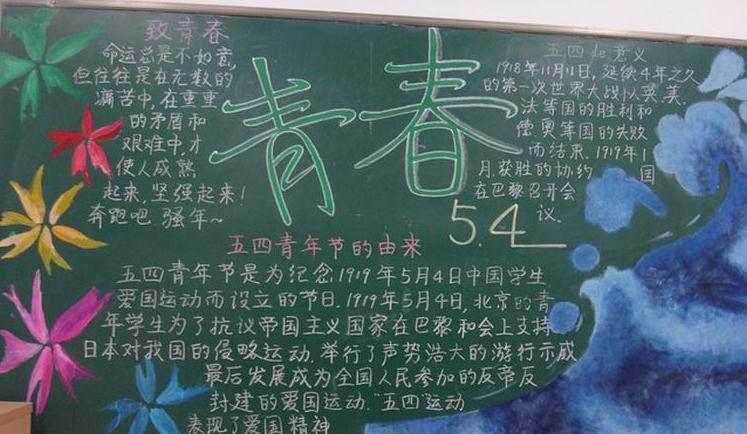 致青春
命运总是不如意,
但往往是在无数的
痛苦中,在重重
的矛盾和
艰难中,才
使人成熟
起来,坚强起来!
奔跑吧 骚年~
青春
5.4
五四起意义
1918年11月11日,延续4年之久
的第一次世界大战以英、美、
法等国的胜利和
德、奥等国的失败
而结束.1919年1
月,获胜的协约国
在巴黎召开会
议.
五四青年节的由来
五四青年节是为纪念1919年5月4日中国学生
爱国运动而设立的节日.1919年5月4日,北京的青
年学生为了抗议帝国主义国家在巴黎和会上支持
日本对我国的侵略运动.举行了声势浩大的游行示威
最后发展成为全国人民参加的反帝反
封建的爱国运动."五四"运动
表现了爱国精神